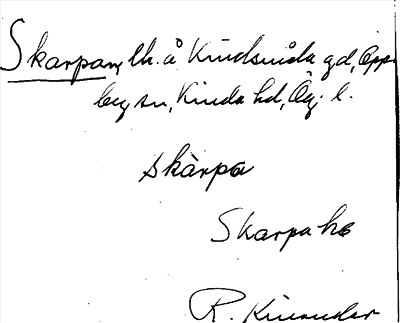 Skarpan, lh. å Kindsnäda gd, Opp-
by sn, Kinda hd, Ög. l.
skàrpa
Skarpa hs
R. Kinander